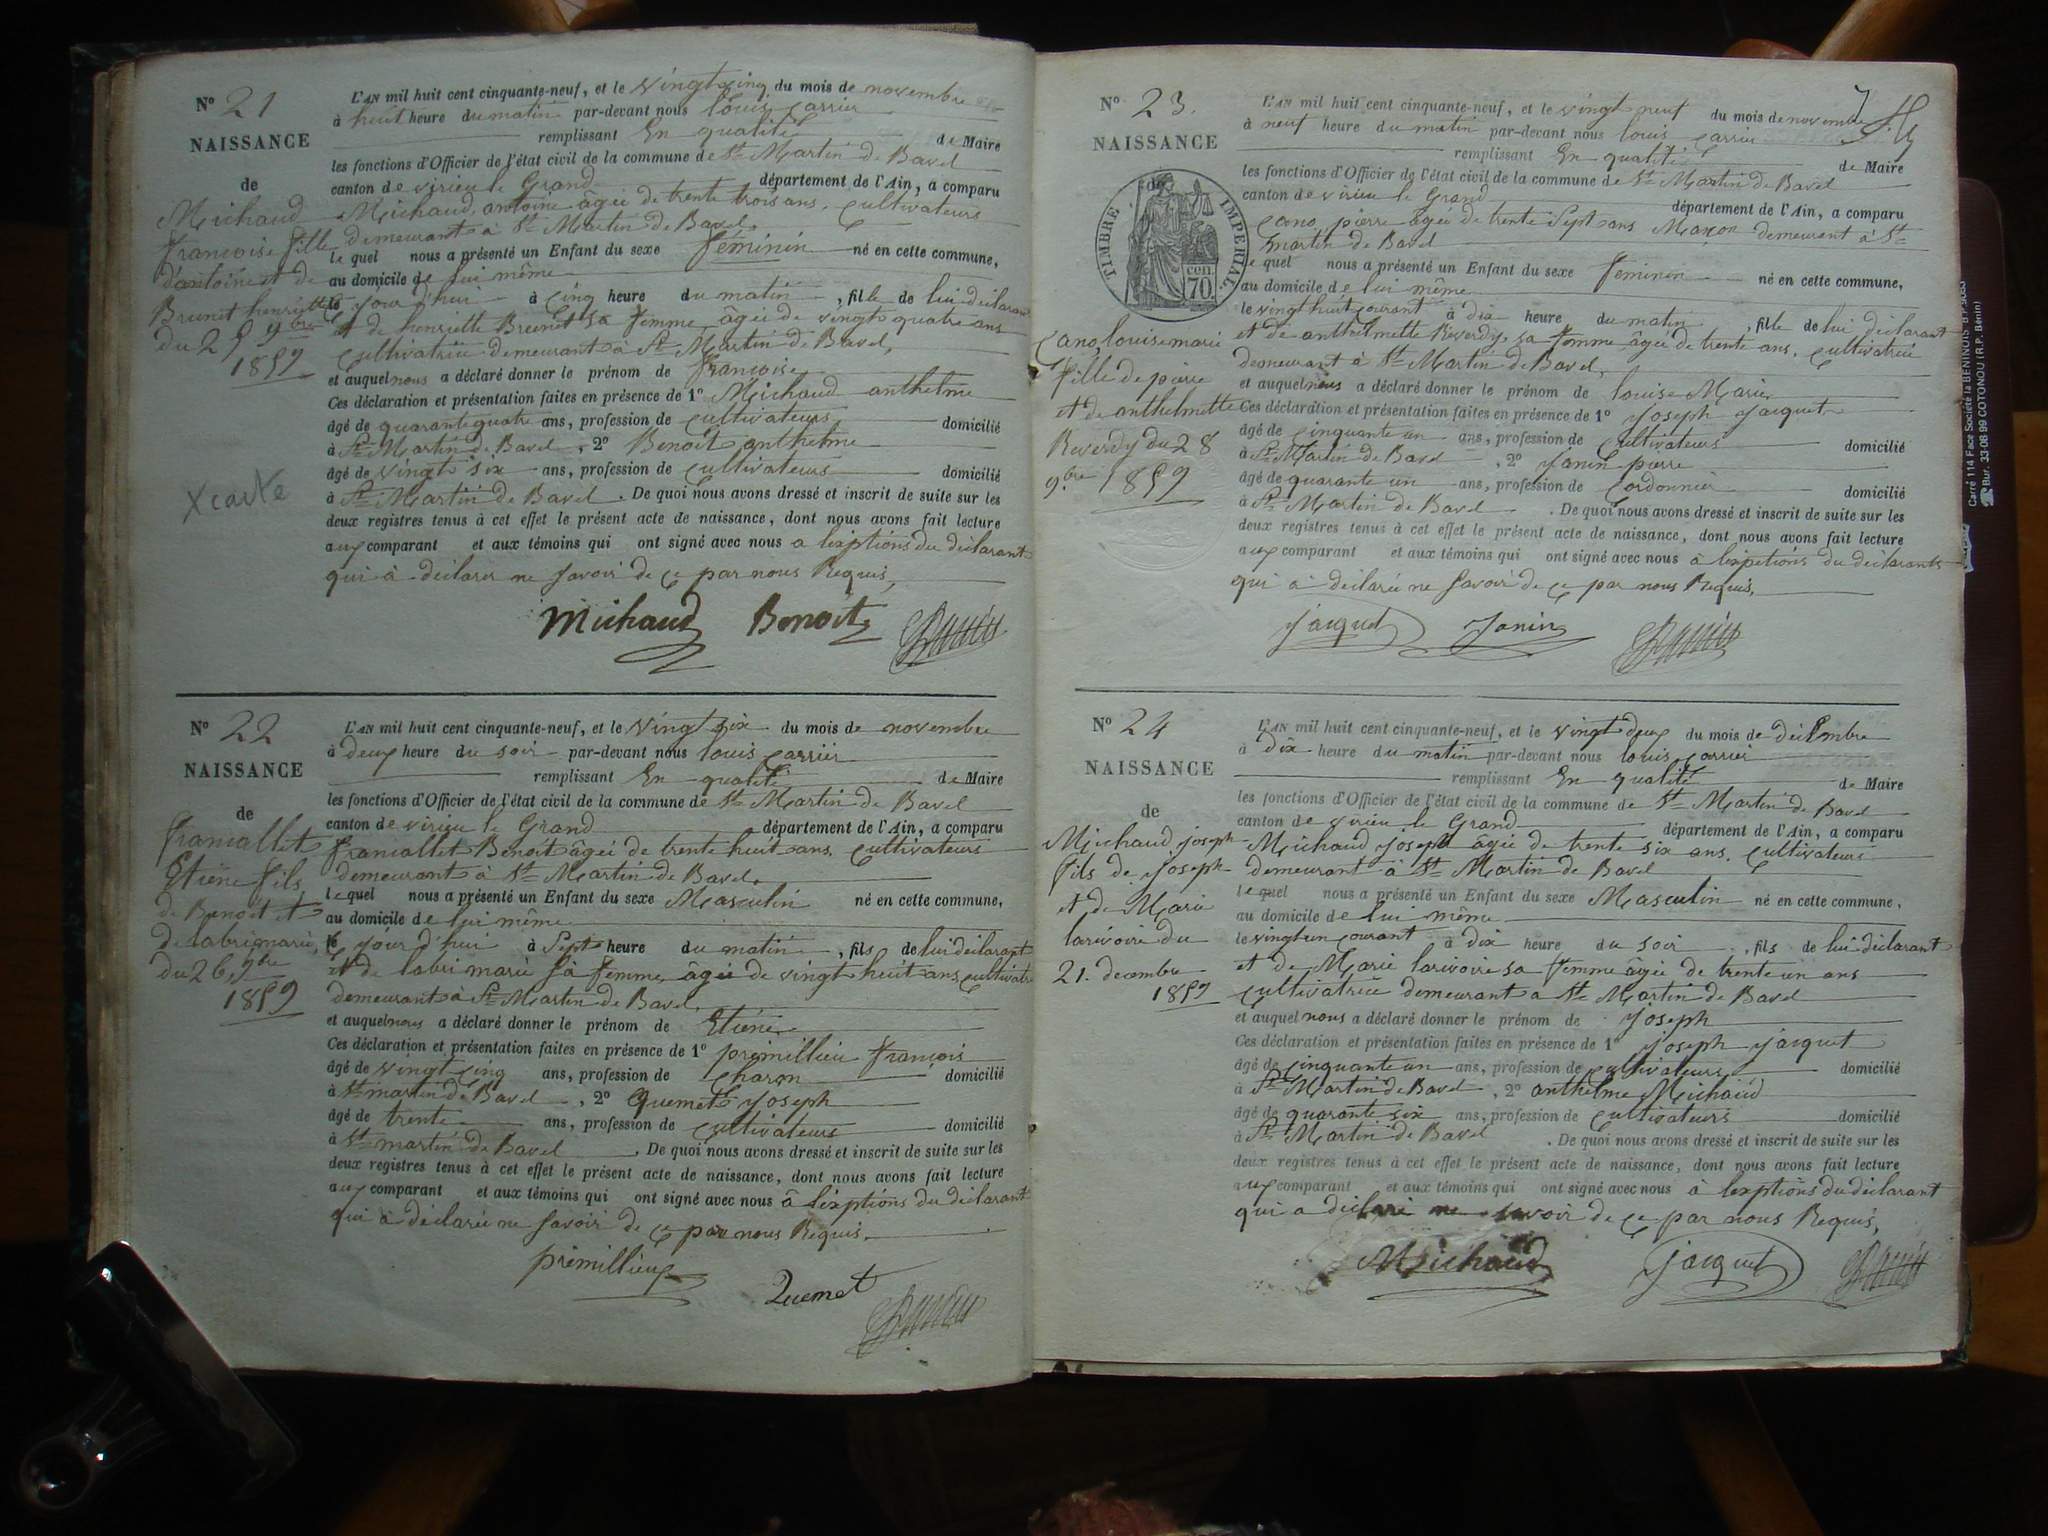 N° 21
NAISSANCE
de
Michaud
francoise fille
d'antoine et de
Brunet henriette
du 25 9bre
1859
X carte
L'AN mil huit cent cinquante-neuf, et le vingt cinq du mois de novembre
à huit heure du matin par-devant nous louis carrier
remplissant En qualité de Maire
les fonctions d'Officier de l'état civil de la commune de St Martin de Bavel
canton de virieu le Grand département de l'Ain, a comparu
Michaud antoine âgée de trente trois ans, Cultivateurs
demeurant à St Martin de Bavel,
le quel nous a présenté un Enfant du sexe féminin né en cette commune,
au domicile de lui même
le jour d'hui à cinq heure du matin, fille de lui déclarant
et de henriette Brunet sa femme âgée de vingt quatre ans
Cultivatrice demeurant à St Martin de Bavel,
et auquel nous a déclaré donner le prénom de francoise
Ces déclaration et présentation faites en présence de 1° Michaud anthelme
âgé de quarante quatre ans, profession de cultivateurs domicilié
à St Martin de Bavel, 2° Benoit anthelme
âgé de vingt six ans, profession de cultivateurs domicilié
à St Martin de Bavel. De quoi nous avons dressé et inscrit de suite sur les
deux registres tenus à cet effet le présent acte de naissance, dont nous avons fait lecture
aux comparant et aux témoins qui ont signé avec nous a lexptions du déclarant
qui à déclaré ne savoir de ce par nous Requis,
Michaud Benoit
N° 22
NAISSANCE
de
francallet
Etiene fils
de Benoit et
de labri marie,
du 26 9bre
1859
L'AN mil huit cent cinquante-neuf, et le vingt six du mois de novembre
à deux heure du soir par-devant nous louis carrier
remplissant En qualité de Maire
les fonctions d'Officier de l'état civil de la commune de St Martin de Bavel
canton de virieu le Grand département de l'Ain, a comparu
francallet Benoit âgée de trente huit ans, cultivateurs
demeurant à St Martin de Bavel,
le quel nous a présenté un Enfant du sexe Masculin né en cette commune,
au domicile de lui même
le jour d'hui à sept heure du matin, fils de lui déclarant
et de labri marie sa femme âgée de vingt huit ans, cultivatr
demeurant à St Martin de Bavel,
et auquel nous a déclaré donner le prénom de Etiéne
Ces déclaration et présentation faites en présence de 1° primillieu françois
âgé de vingt cinq ans, profession de Charon domicilié
à St martin de Bavel, 2° Quemet joseph
âgé de trente ans, profession de cultivateurs domicilié
à St martin de Bavel. De quoi nous avons dressé et inscrit de suite sur les
deux registres tenus à cet effet le présent acte de naissance, dont nous avons fait lecture
aux comparant et aux témoins qui ont signé avec nous à lexptions du déclarant
qui à déclaré ne savoir de ce par nous Requis,
primillieux
Quemet
N° 23.
NAISSANCE
de
TIMBRE IMPERIAL
70 cen.
Cano, louise marie
fille de pierre
et de anthelmette
Reverdy du 28
9bre 1859
7
L'AN mil huit cent cinquante-neuf, et le vingt neuf du mois de novembre
à neuf heure du matin par-devant nous louis carrier
remplissant En qualité de Maire
les fonctions d'Officier de l'état civil de la commune de St Martin de Bavel
canton de virieu le Grand département de l'Ain, a comparu
Cano, pierre âgée de trente sept ans Maçon demeurant à St
martin de Bavel
le quel nous a présenté un Enfant du sexe feminin né en cette commune,
au domicile de lui même
le vingt huit courant à dix heure du matin, fille de lui déclarant
et de anthelmette Reverdy sa femme âgée de trente ans, cultivatrice
demeurant à St Martin de Bavel,
et auquel nous a déclaré donner le prénom de louise Marie
Ces déclaration et présentation faites en présence de 1° joseph jacquet
âgé de cinquante un ans, profession de cultivateurs domicilié
à St Martin de Bavel, 2° janin pierre
âgé de quarante un ans, profession de cordonnier domicilié
à St Martin de Bavel. De quoi nous avons dressé et inscrit de suite sur les
deux registres tenus à cet effet le présent acte de naissance, dont nous avons fait lecture
aux comparant et aux témoins qui ont signé avec nous à lexptions du déclarant
qui à déclaré ne savoir de ce par nous Requis,
jacquet Janin
N° 24
NAISSANCE
de
Michaud joseph
fils de joseph
et de Marie
larivoire du
21. decembre
1859
L'AN mil huit cent cinquante-neuf, et le vingt deux du mois de décembre
à dix heure du matin par-devant nous louis carrier
remplissant En qualité de Maire
les fonctions d'Officier de l'état civil de la commune de St Martin de Bavel
canton de virieu le Grand département de l'Ain, a comparu
Michaud joseph âgée de trente six ans, cultivateurs
demeurant à St Martin de Bavel
le quel nous a présenté un Enfant du sexe Masculin né en cette commune,
au domicile de lui même
le vingt un courant à dix heure du soir, fils de lui déclarant
et de Marie larivoire sa femme âgée de trente un ans
cultivatrice demeurant a St Martin de Bavel
et auquel nous a déclaré donner le prénom de joseph
Ces déclaration et présentation faites en présence de 1° joseph jacquet
âgé de cinquante un ans, profession de cultivateurs domicilié
à St Martin de Bavel, 2° anthelme Michaud
âgé de quarante six ans, profession de cultivateurs domicilié
à St Martin de Bavel. De quoi nous avons dressé et inscrit de suite sur les
deux registres tenus à cet effet le présent acte de naissance, dont nous avons fait lecture
aux comparant et aux témoins qui ont signé avec nous à lexptions du déclarant
qui a déclaré ne savoir de ce par nous Requis,
Michaud jacquet
Carré 114 Face Société la BENINOIS B.P.9083
Bur. 33-08 99 COTONOU (R.P. Bénin)